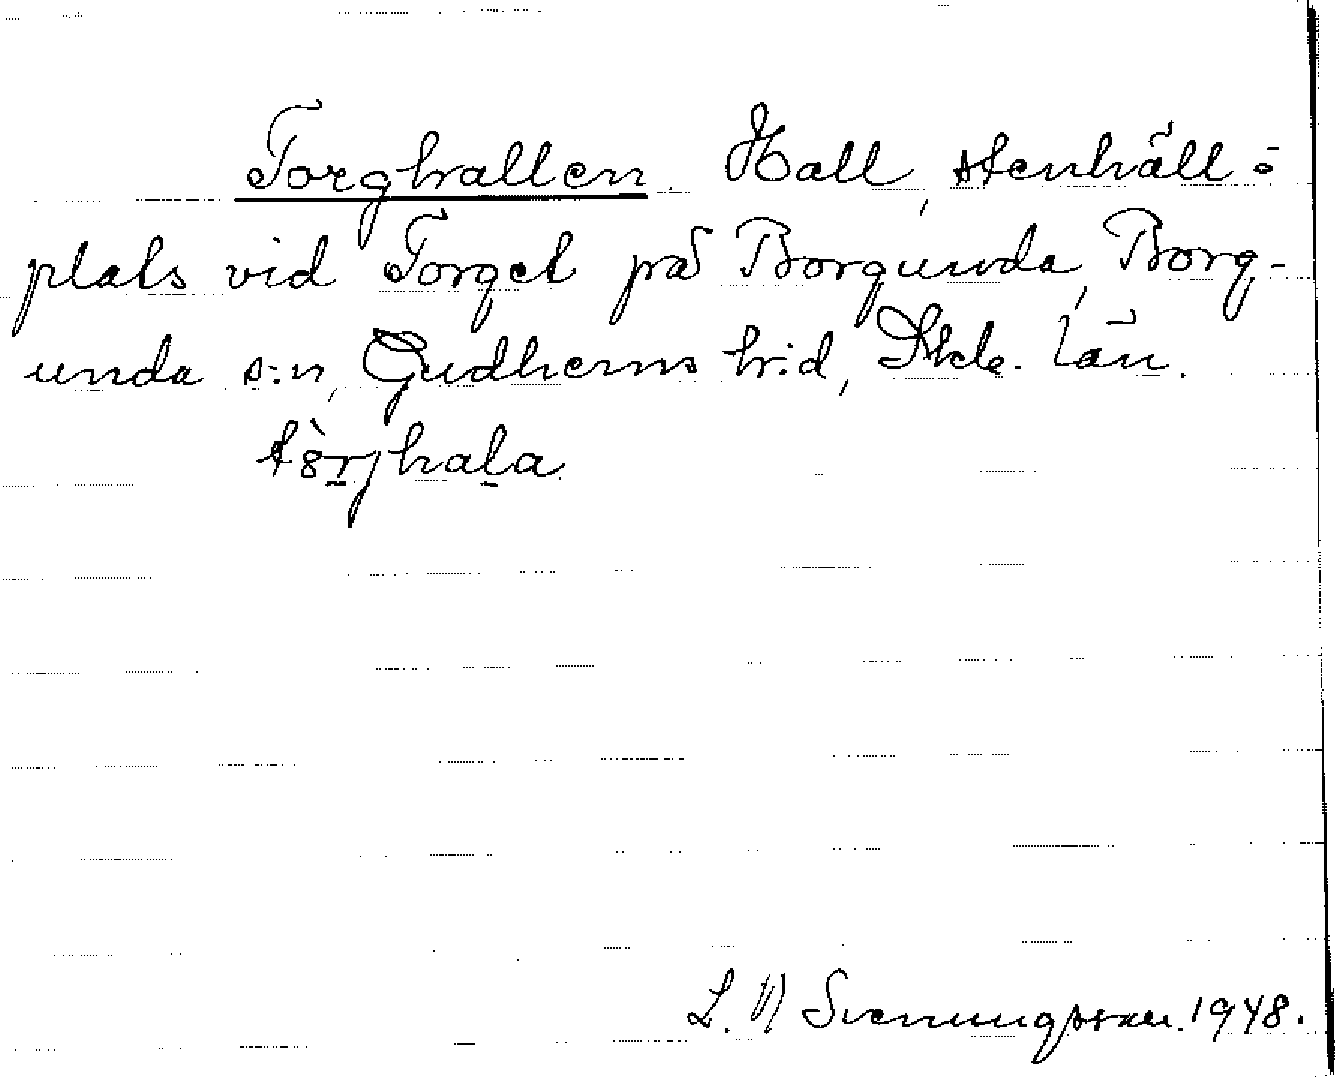 Torghallen. Hall, stenhäll=
plats vid Torget på Borgunda, Borg-
unda s:n, Gudhems h:d, Skb. län.
tȍrjhala.
Svenungsson. 1948.